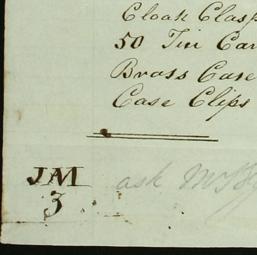 Cloak Clasp
50 Tin Can
Brass Case
Case Clips
JM
3
ask